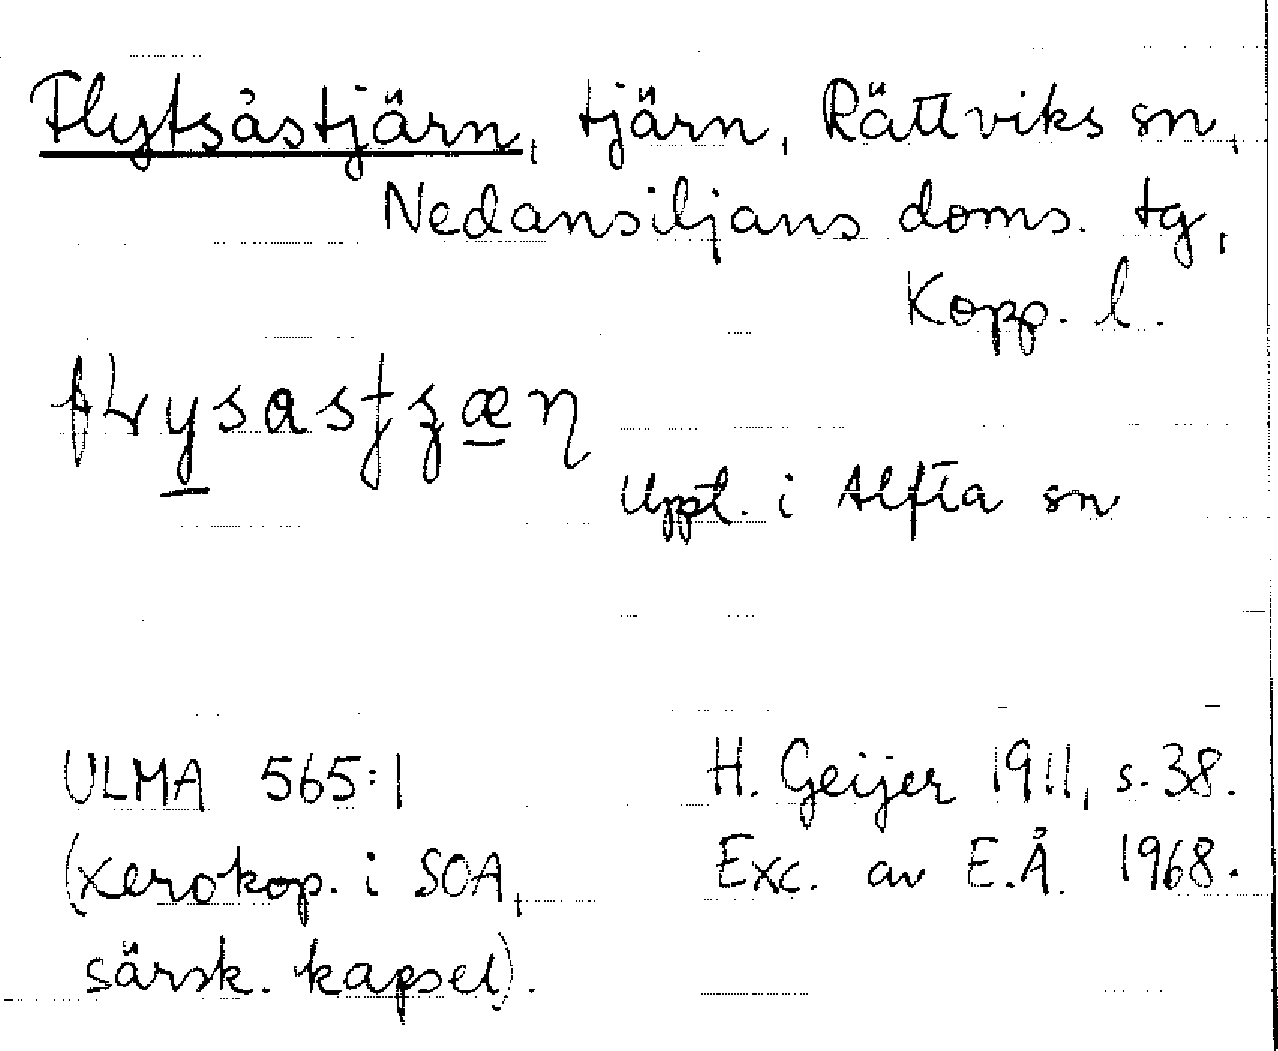 Flytsåstjärn, tjärn, Rättviks sn,
Nedansiljans doms. tg,
Kopp. l.
Uppt. i Alfta sn
ULMA 565:1
H. Geijer 1911, s. 38.
(xerokop. i SOA,
Exc. av E.Å. 1968.
särsk. kapsel).